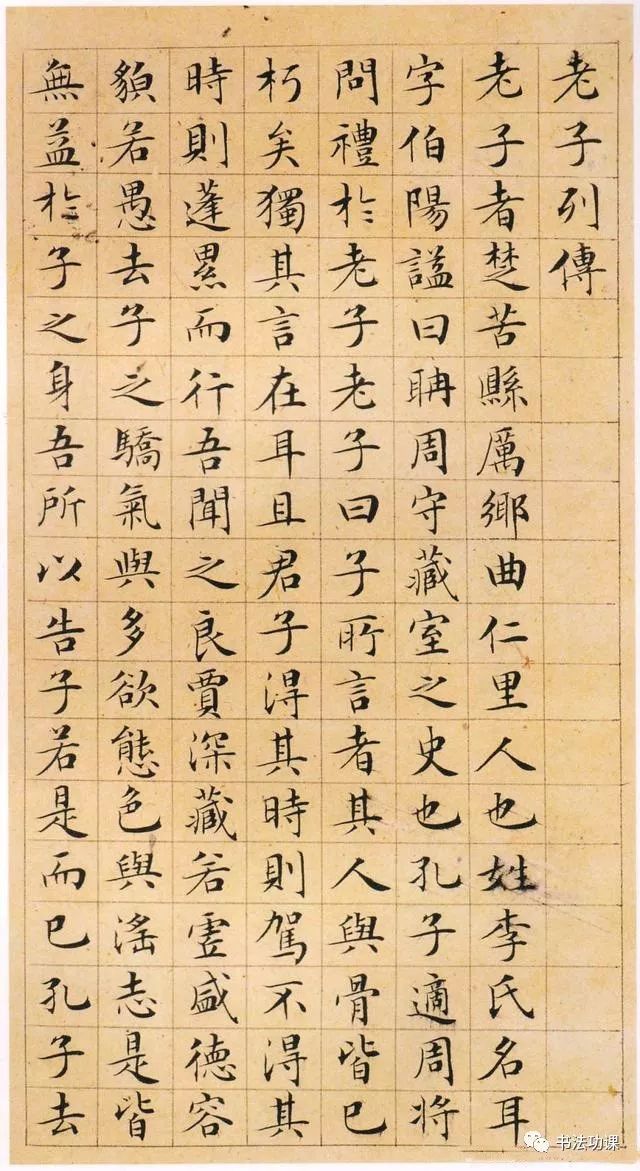 老子列傳
老子者楚苦縣厲鄉曲仁里人也姓李氏名耳
字伯陽謚曰聃周守藏室之史也孔子適周將
問禮於老子老子曰子所言者其人與骨皆已
朽矣獨其言在耳且君子得其時則駕不得其
時則蓬累而行吾聞之良賈深藏若虛盛德容
貌若愚去子之驕氣與多欲態色與淫志是皆
無益於子之身吾所以告子若是而已孔子去
书法功课